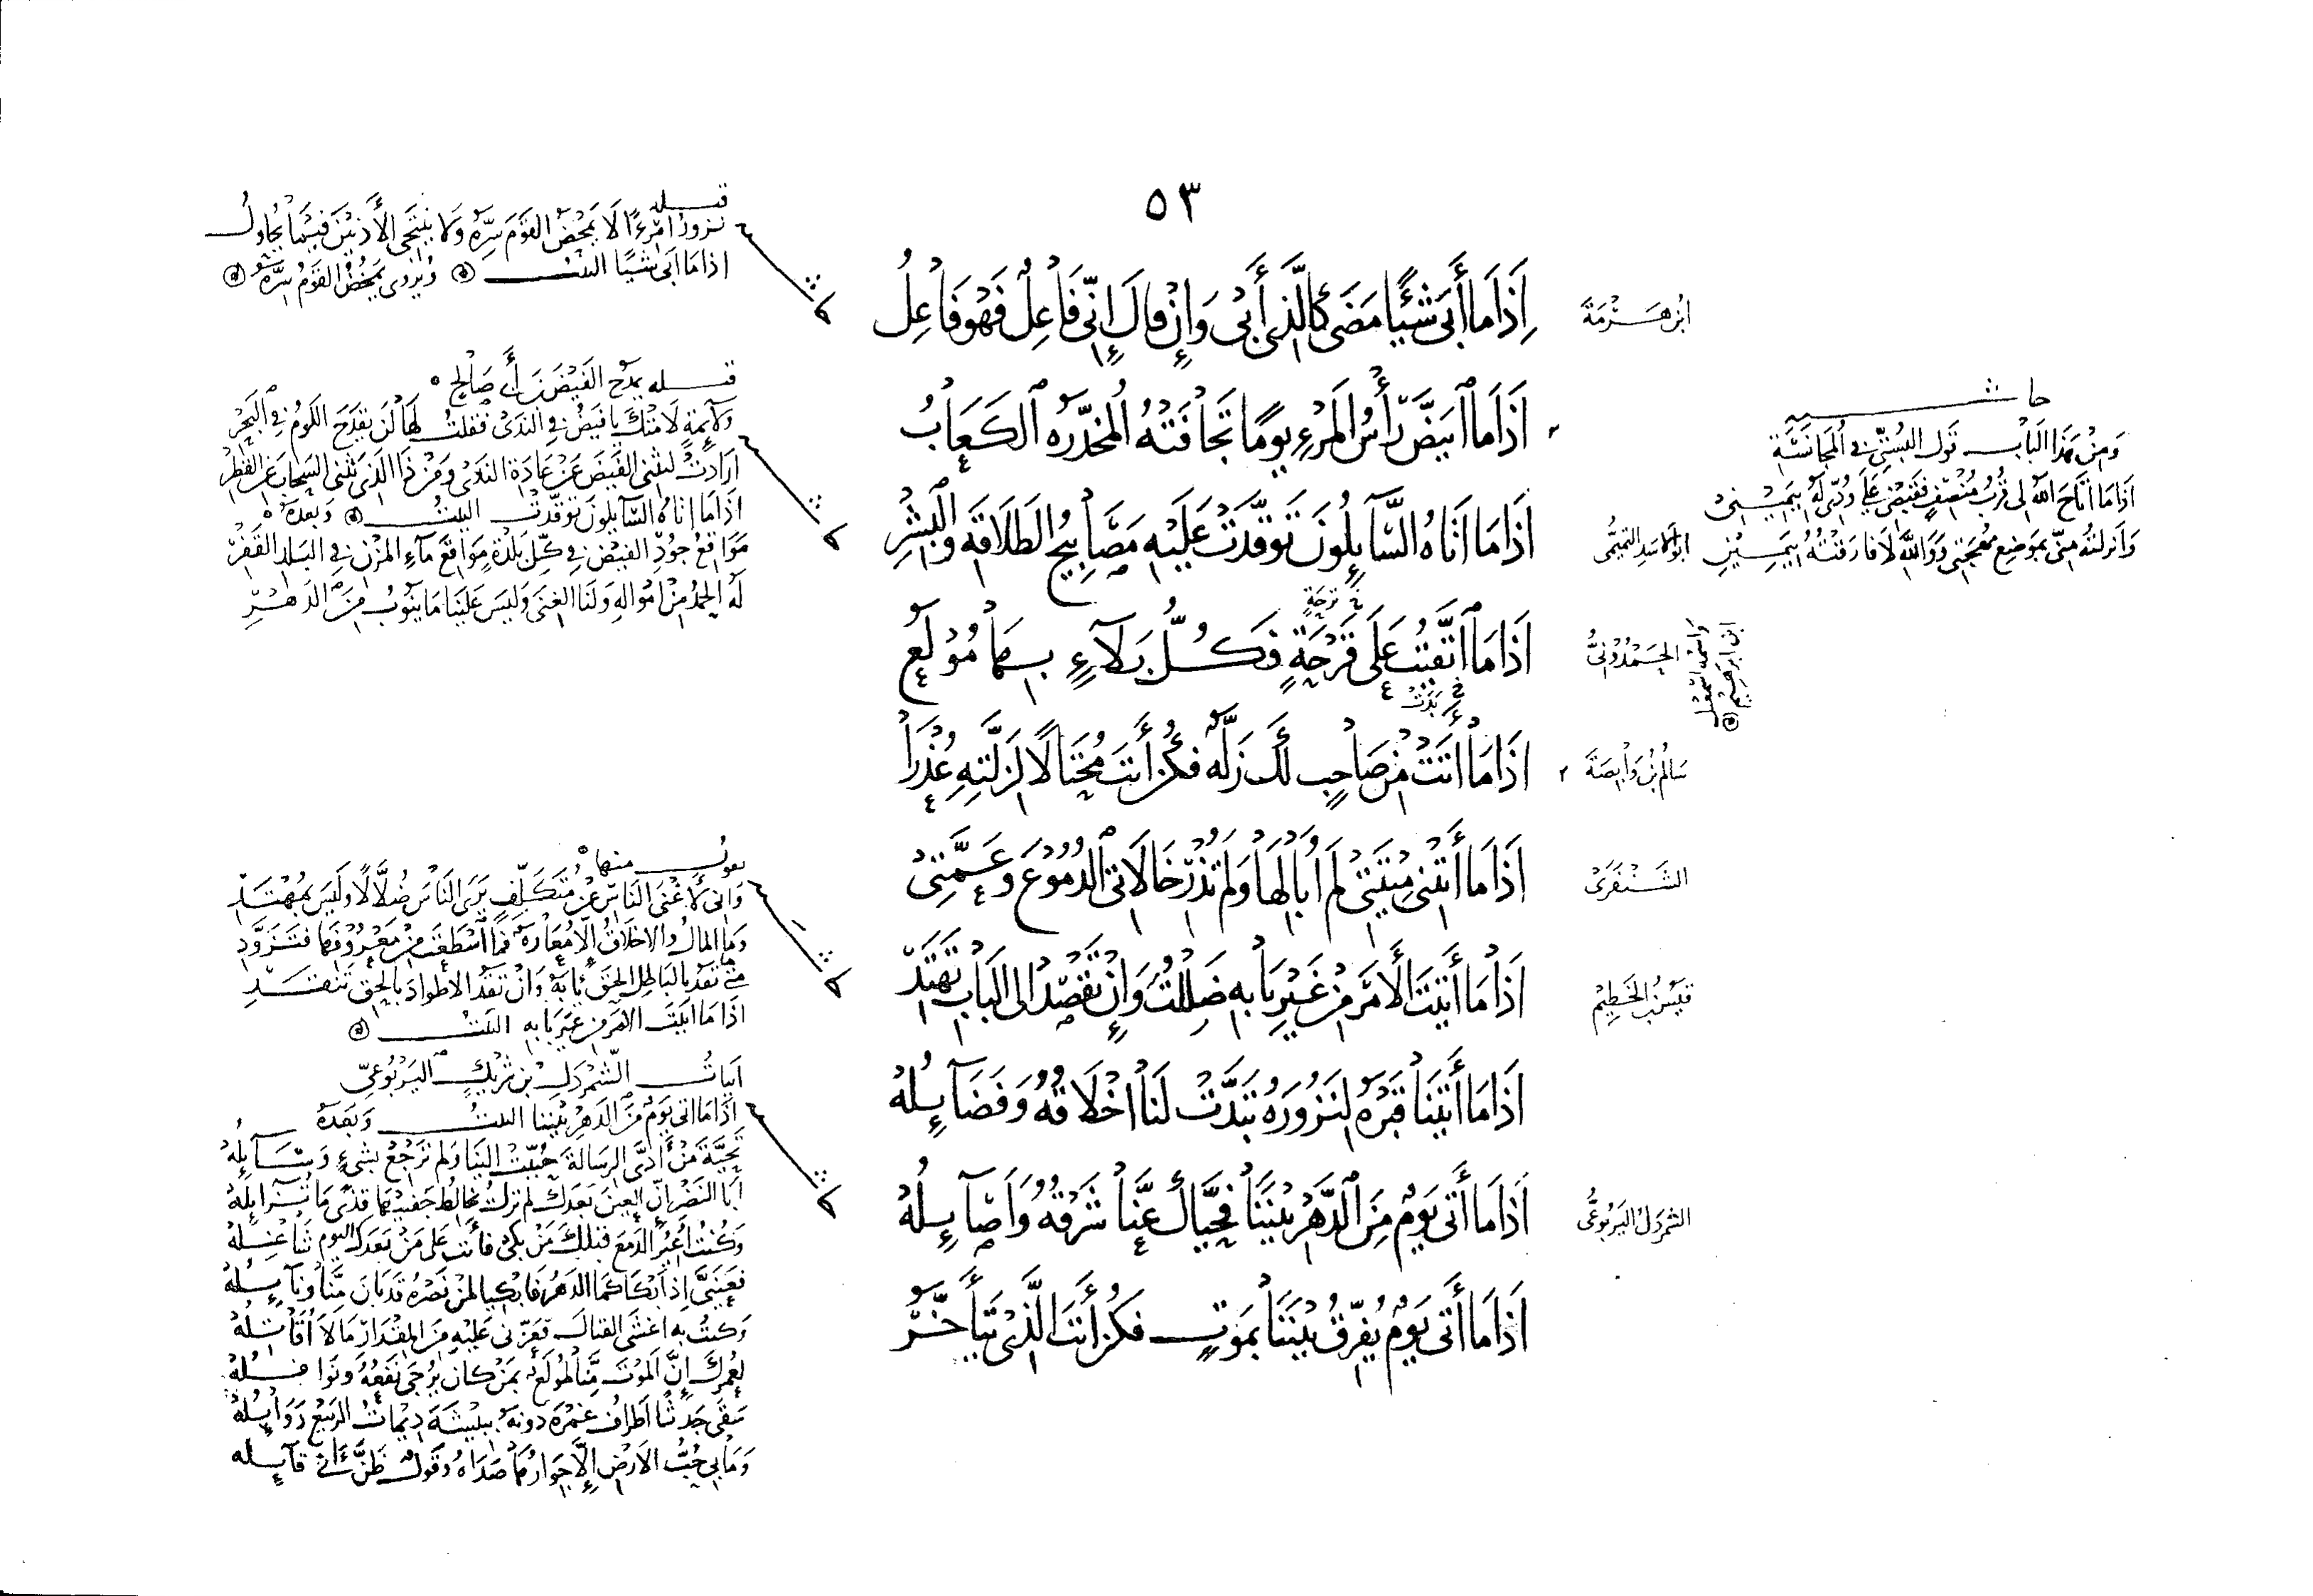 ٥٣
ابْنُ هَرْمَةَ
إِذَا مَا أَبَى شَيْئًا مَضَى كَالَّذِي أَبَى وَإِنْ قَالَ إِنِّي فَاعِلٌ فَهْوَ فَاعِلُ
إِذَا مَا ابْيَضَّ رَأْسُ الْمَرْءِ يَوْمًا تَجَافَتْهُ الْمُخَدَّرَةُ الْكَعَابُ
أبو الأسد التميمي
إِذَا مَا أَتَاهُ السَّآئِلُونَ تَوَقَّدَتْ عَلَيْهِ مَصَابِيحُ الطَّلَاقَةِ وَالْبِشْرِ
الحمدوني
واسمه اسمعيل
ابن ابرهيم
إِذَا مَا اتَّقَيْتَ عَلَى قَرْحَةٍ فَكُلُّ بَلَآءٍ بِهَا مُولَعُ
سَالِمُ بْنُ وَابِصَةَ
إِذَا مَا أَتَتْ مِنْ صَاحِبٍ لَكَ زَلَّةٌ فَكُنْ أَنْتَ مُحْتَالًا لِزَلَّتِهِ عُذْرَا
خ بدت
الشَّنْفَرَى
إِذَا مَا أَتَتْنِي مِيتَتِي لَمْ أُبَالِهَا وَلَمْ تُذْرِ خَالَاتِي الدُّمُوعَ وَعَمَّتِي
قَيْسُ بْنُ الْخَطِيمِ
إِذَا مَا أَتَيْتَ الْأَمْرَ مِنْ غَيْرِ بَابِهِ ضَلَلْتَ وَإِنْ تَقْصِدْ إِلَى الْبَابِ تَهْتَدِ
إِذَا مَا أَتَيْنَا قَبْرَهُ لِنَزُورَهُ تَبَدَّتْ لَنَا أَخْلَاقُهُ وَفَضَآئِلُهْ
الشمردل اليربوعي
إِذَا مَا أَتَى يَوْمٌ مِنَ الدَّهْرِ بَيْنَنَا فَحَيَّاكَ عَنَّا شَرْقُهُ وَأَصَآئِلُهْ
إِذَا مَا أَتَى يَوْمٌ يُفَرِّقُ بَيْنَنَا بِمَوْتٍ فَكُنْ أَنْتَ الَّذِي تَتَأَخَّرُ
حاشية
ومن هذا الباب قول البستي في المجانسة
إذا ما أتاح الله لي قرب منصف فقبض على ودي له بيميني
وأنزلته مني بموضع مهجتي ووالله لا فارقته بيمين
قبله
نزور امرءا لا يمحض القوم سره ولا ينتجي الأدنين فيما يحاول
إذا ما أبى شيئا البيت ويروى يمحض القوم سره
قبله يمدح الفيض بن أبي صالح
ولآئمة لامتك يا فيض في الندى فقلت لها لن يقدح اللوم في البحر
أرادت لتثني الفيض عن عادة الندى ومن ذا الذي يثني السحاب عن القطر
إذا ما أتاه السآئلون توقدت البيت وبعده
مواقع جود الفيض في كل بلدة مواقع مآء المزن في البلد القفر
له الحمد من أمواله ولنا الغنى وليس علينا ما ينوب من الدهر
يقول منها
وإني لأغنى الناس عن متكلف يرى الناس ضلالا وليس بمهتد
وما المال والأخلاق إلا معارة فما اسطعت من معروفها فتزود
متى تقد بالباطل الحق يأبه وإن تقد الأطواد بالحق تنقد
إذا ما أتيت الأمر من غير بابه البيت
أبيات الشمردل بن شريك اليربوعي
إذا ما أتى يوم من الدهر بيننا البيت وبعده
تحية من أدى الرسالة حببت إلينا ولم ترجع بشيء وسآئله
أبا النضر إن العين بعدك لم تزل يخالط جفنيها قذى ما تزايله
وكنت أعير الدمع قبلك من بكى فأنت على من بعدك اليوم شاغله
فعيني إذ أبكاكما الدهر فابكيا لمن نصره قد بان منا ونآئله
وكنت به أغشى القتال فعزني عليه من المقدار ما لا أقاتله
لعمرك إن الموت منا لمولع بمن كان يرجى نفعه ونوافله
سقى جدثا أطراف غمرة دونه ببيشة ديمات الربيع ووابله
وما بي حب الأرض إلا جوارها صداه وقول ظن أني قآئله